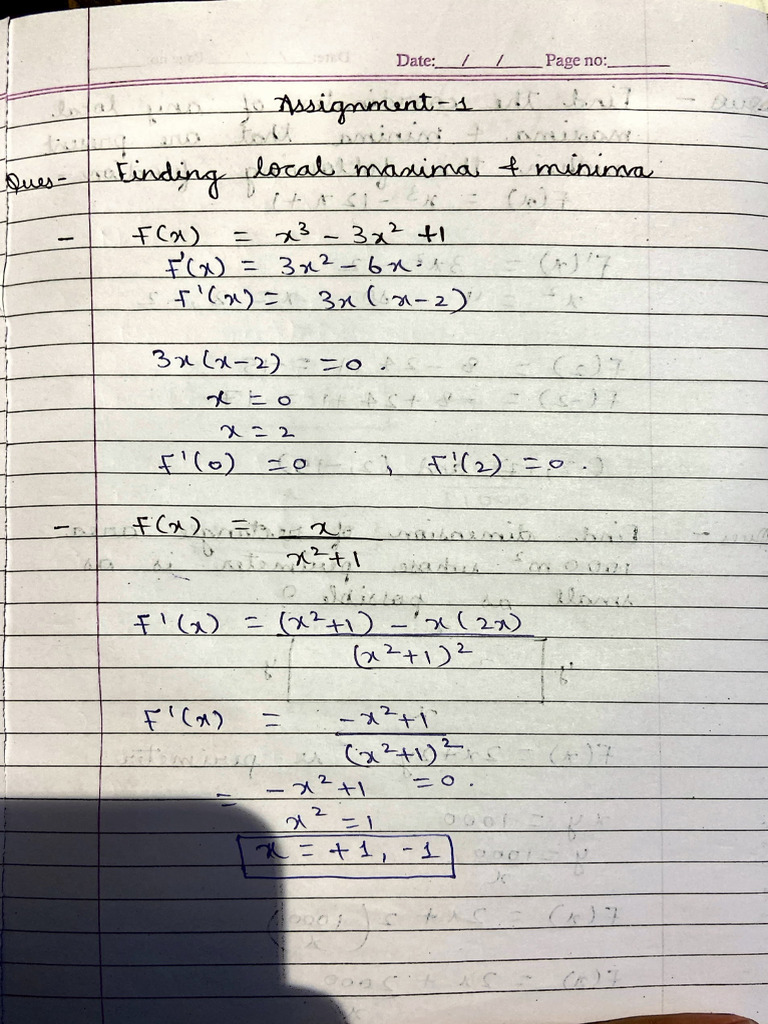 Date: / / Page no:
Assignment-1
Ques- Finding local maxima & minima
- F(x) = x³ - 3x² + 1
F'(x) = 3x² - 6x.
F'(x) = 3x(x-2)
3x(x-2) = 0.
x = 0
x = 2
F'(0) = 0 , F'(2) = 0.
- F(x) = x
x²+1
F'(x) = (x²+1) - x(2x)
(x²+1)²
F'(x) = -x²+1
(x²+1)²
= -x²+1 = 0.
x² = 1
x = +1, -1